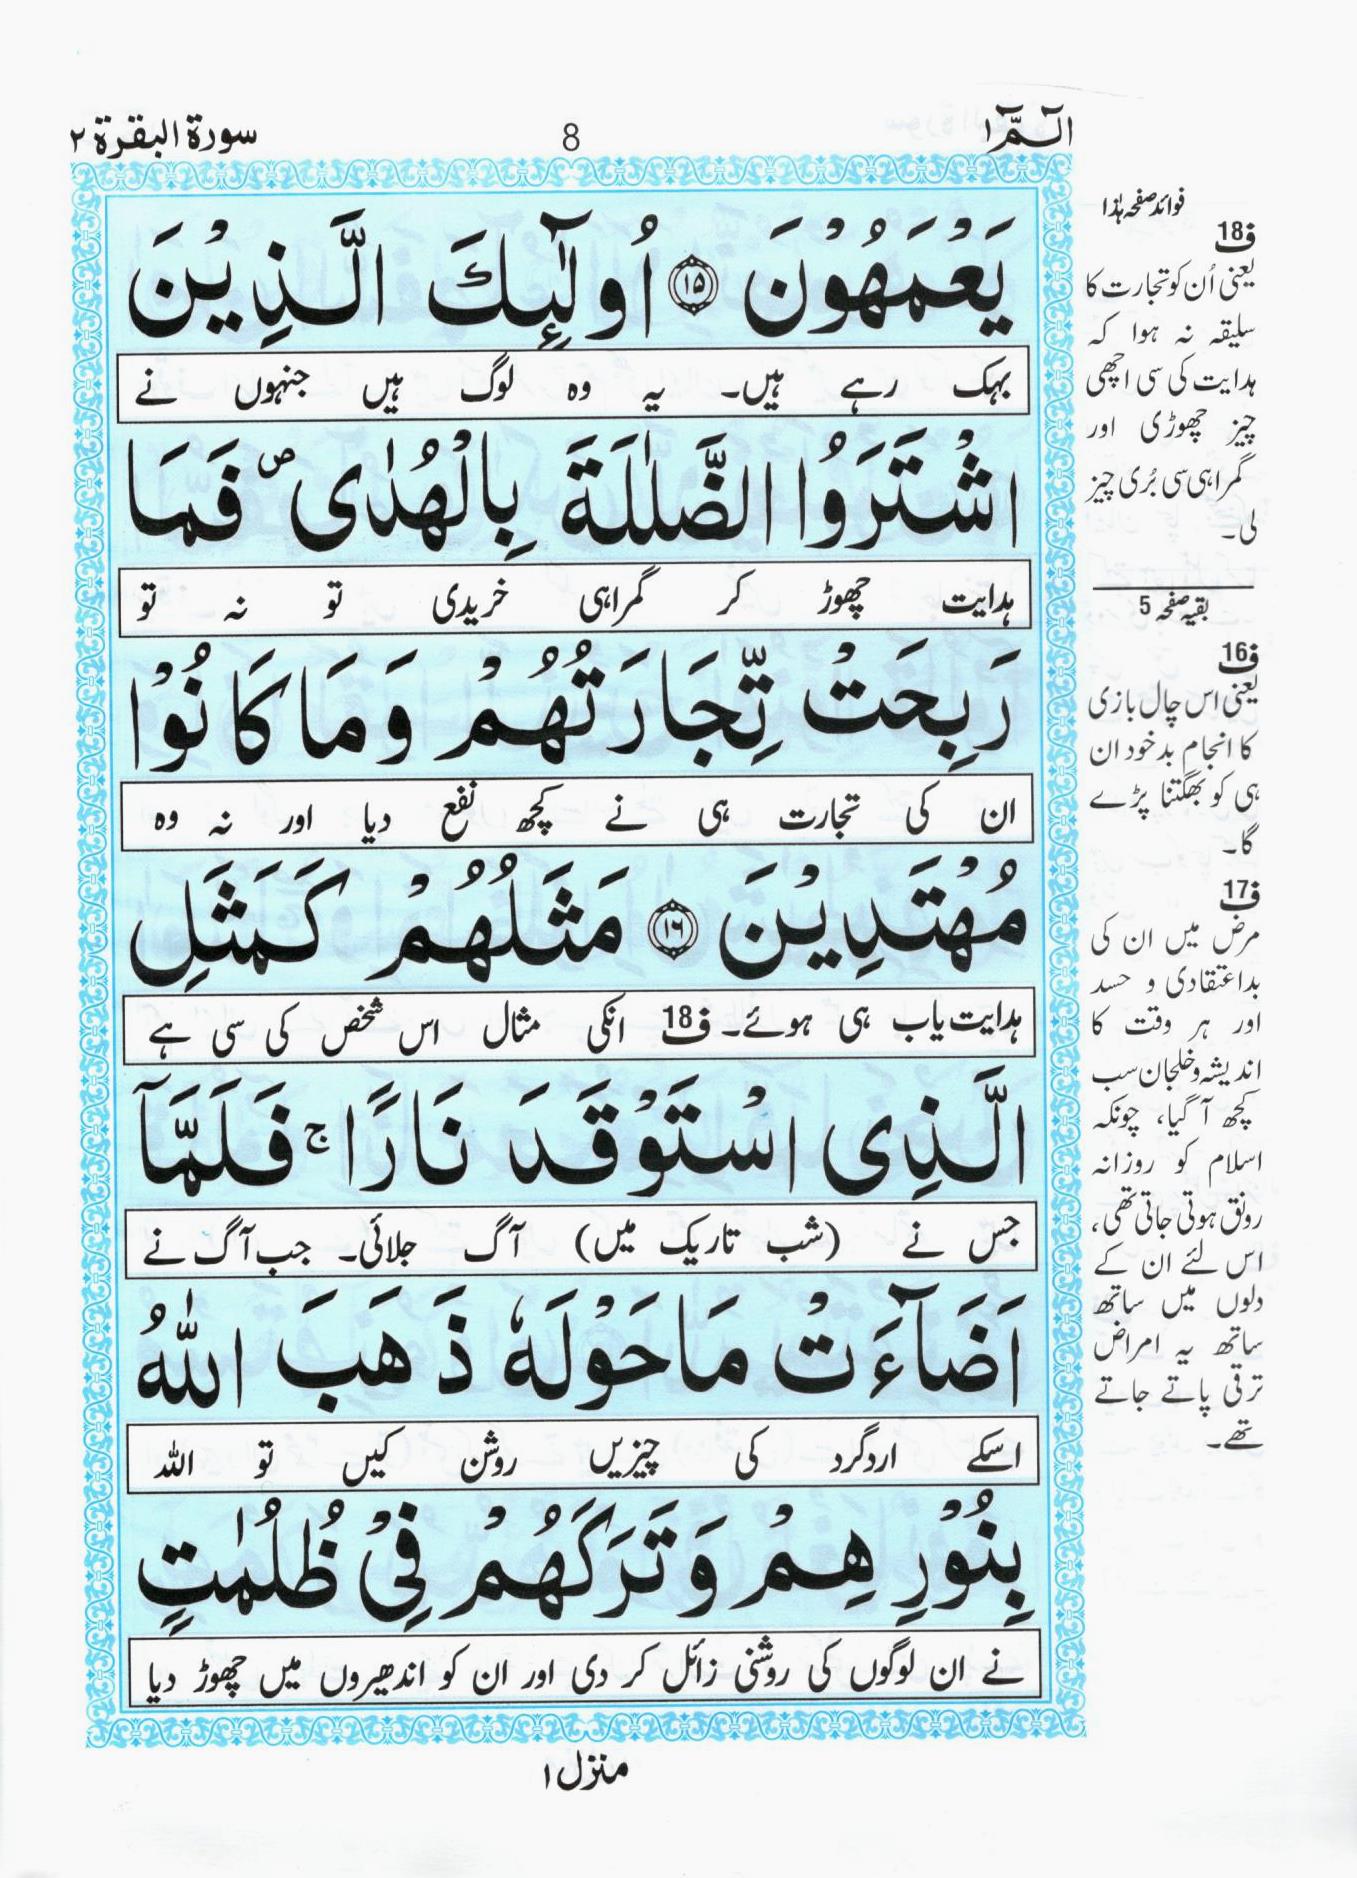 الٓمّٓ ۱
8
سورة البقرة ۲
يَعْمَهُوْنَ ۝۱۵ اُولٰٓئِكَ الَّذِيْنَ
بہک رہے ہیں۔ یہ وہ لوگ ہیں جنہوں نے
اشْتَرَوُا الضَّلٰلَةَ بِالْهُدٰى ۪ فَمَا
ہدایت چھوڑ کر گمراہی خریدی تو نہ تو
رَبِحَتْ تِّجَارَتُهُمْ وَمَا كَانُوْا
ان کی تجارت ہی نے کچھ نفع دیا اور نہ وہ
مُهْتَدِيْنَ ۝۱۶ مَثَلُهُمْ كَمَثَلِ
ہدایت یاب ہی ہوئے۔ ف18 انکی مثال اس شخص کی سی ہے
الَّذِى اسْتَوْقَدَ نَارًا ۚ فَلَمَّآ
جس نے (شب تاریک میں) آگ جلائی۔ جب آگ نے
اَضَآءَتْ مَا حَوْلَهٗ ذَهَبَ اللّٰهُ
اسکے اردگرد کی چیزیں روشن کیں تو اللہ
بِنُوْرِهِمْ وَتَرَكَهُمْ فِىْ ظُلُمٰتٍ
نے ان لوگوں کی روشنی زائل کر دی اور ان کو اندھیروں میں چھوڑ دیا
فوائد صفحہ ہٰذا
ف18
یعنی اُن کو تجارت کا
سلیقہ نہ ہوا کہ
ہدایت کی سی اچھی
چیز چھوڑی اور
گمراہی سی بُری چیز
لی۔
بقیہ صفحہ 5
ف16
یعنی اس چال بازی
کا انجام بد خود ان
ہی کو بھگتنا پڑے
گا۔
ف17
مرض میں ان کی
بداعتقادی و حسد
اور ہر وقت کا
اندیشہ و خلجان سب
کچھ آ گیا، چونکہ
اسلام کو روزانہ
رونق ہوتی جاتی تھی،
اس لئے ان کے
دلوں میں ساتھ
ساتھ یہ امراض
ترقی پاتے جاتے
تھے۔
منزل ۱